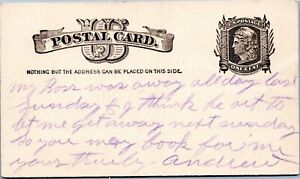 U.S. POSTAGE
POSTAL CARD.
ONE CENT
NOTHING BUT THE ADDRESS CAN BE PLACED ON THIS SIDE.
My Boss was away all day last
Sunday & I think he ort to
let me get away next sunday
So you may book for me
yours truely - Andrew